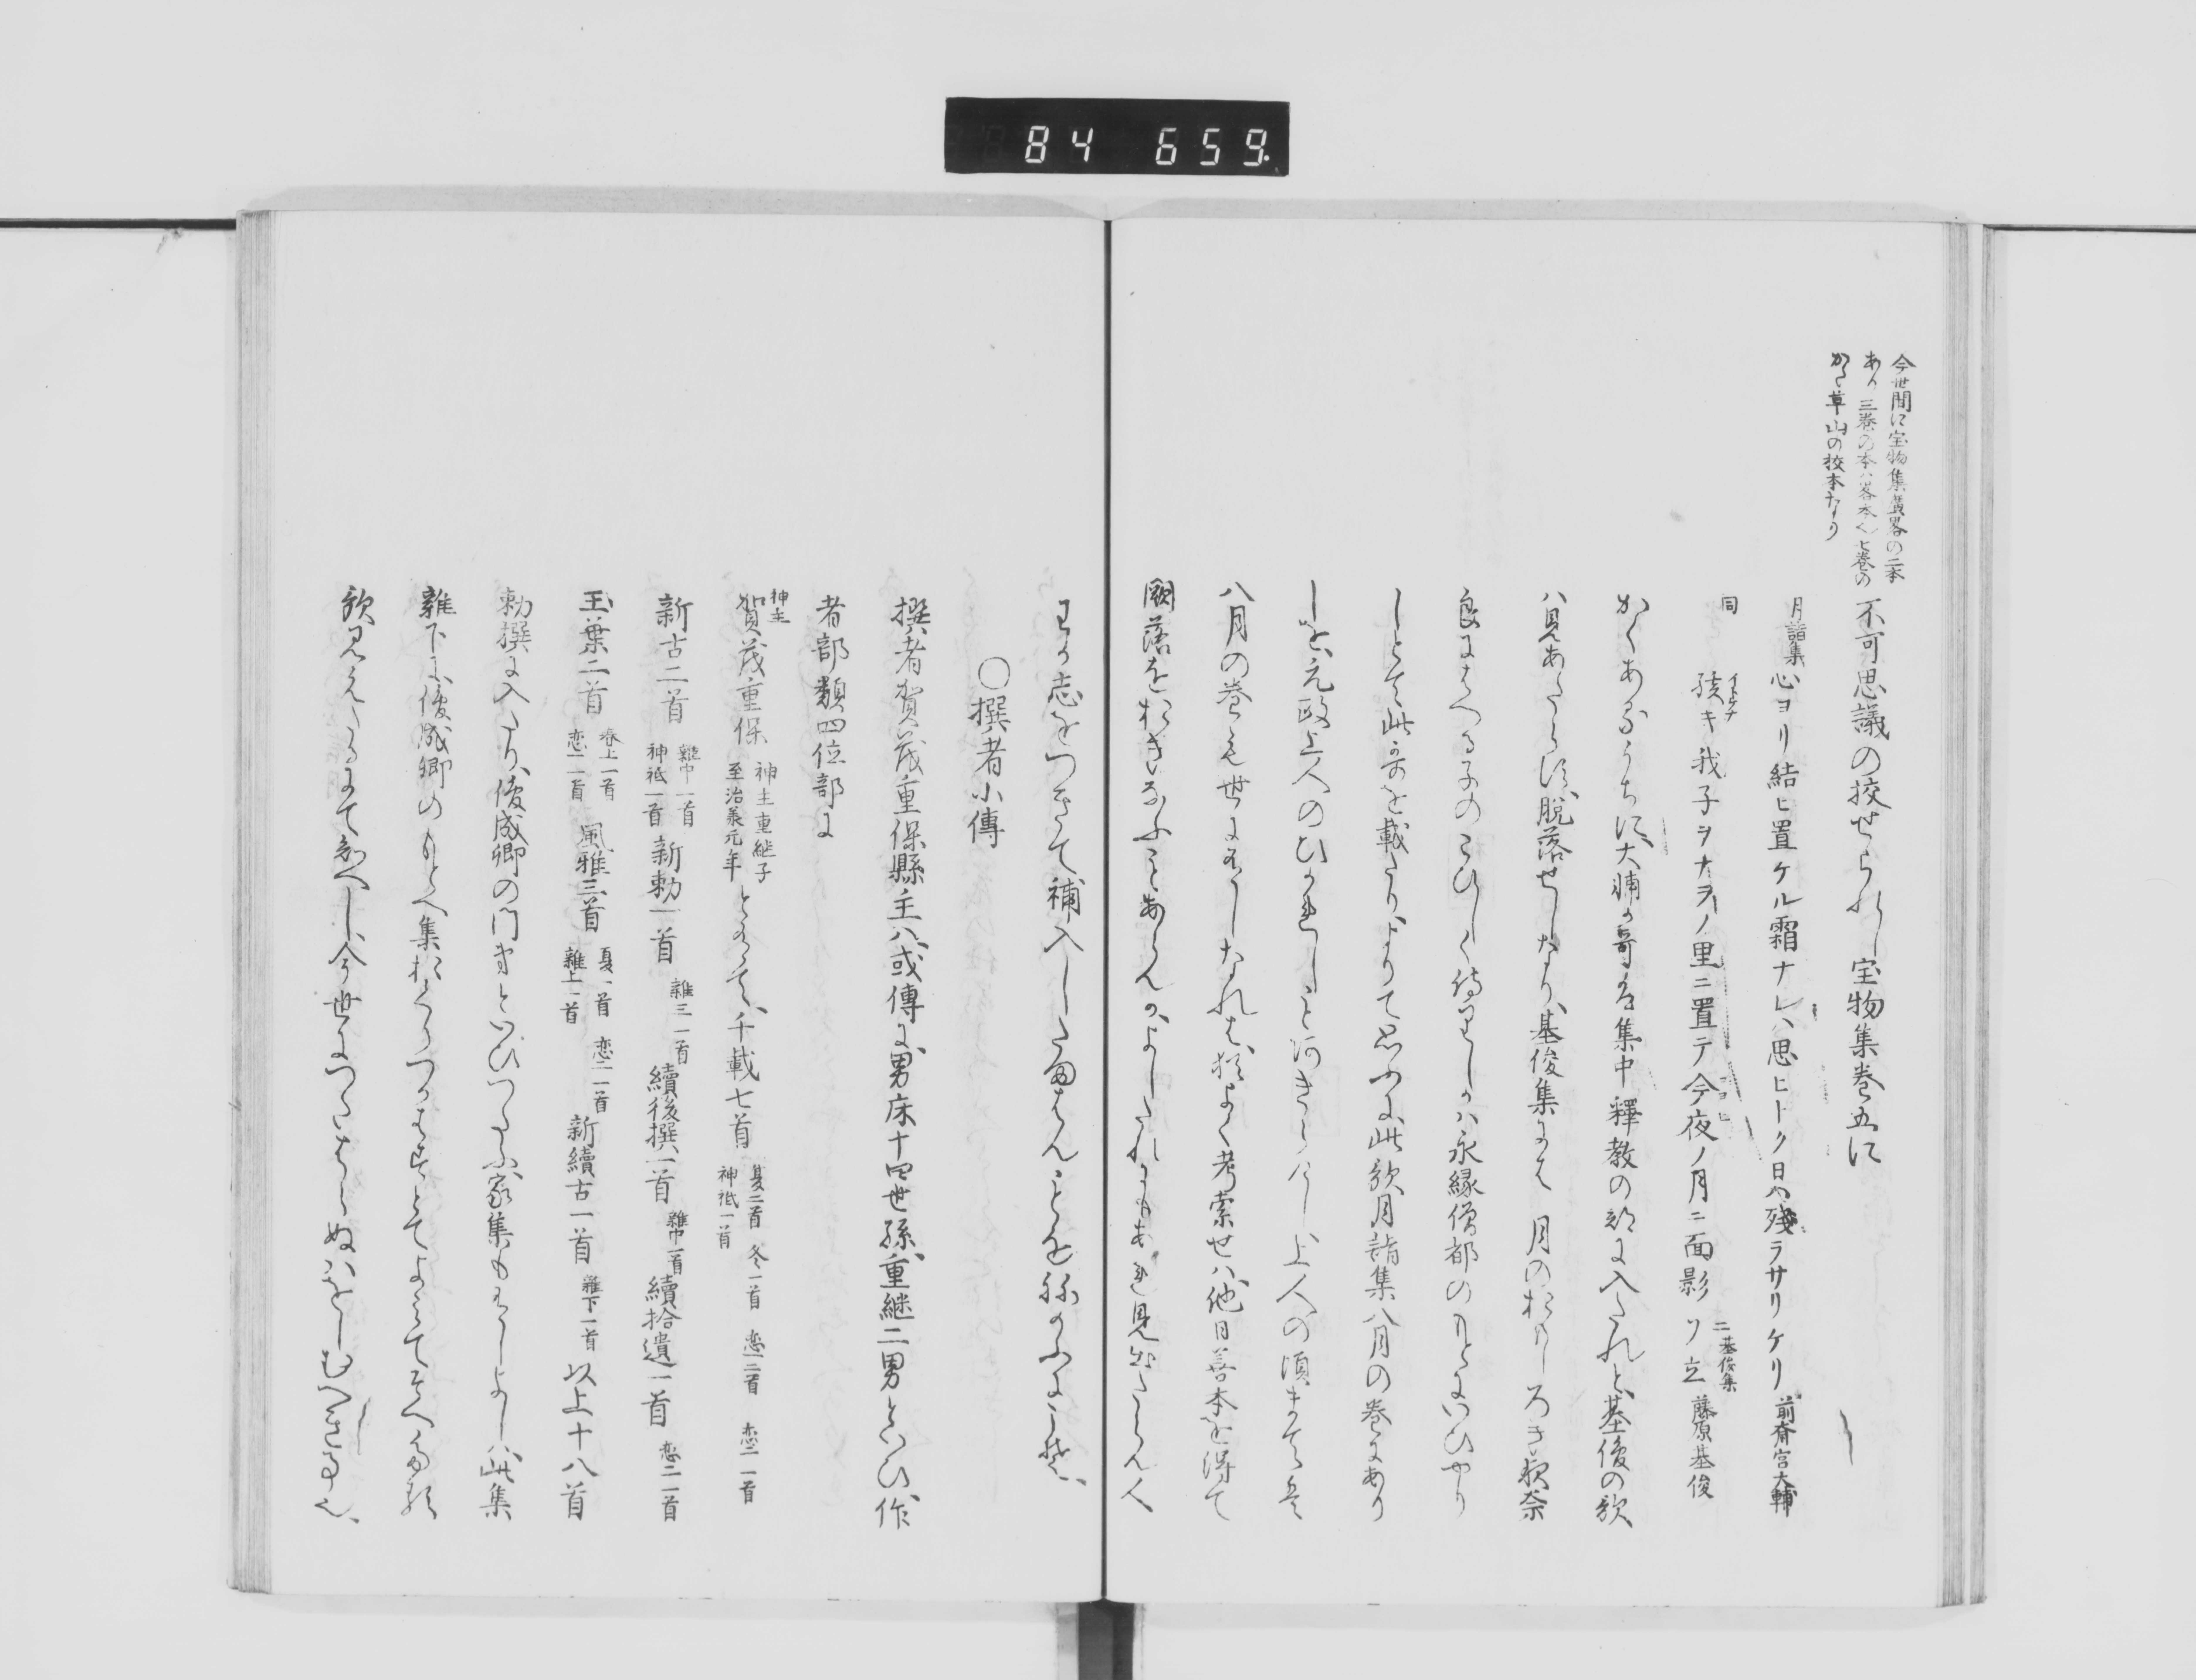 84 659
今世間に宝物集廣畧の二本
あり三巻の本ハ畧本也七巻の
かた草山の校本なり
不可思議の挍せられし宝物集巻五に
月詣集 心ヨリ結ヒ置ケル霜ナレハ思ヒトク日ハ残ラサリケリ 前斎宮大輔
同 孩キ我子ヲナヲノ里ニ置テ今夜ノ月ニ面影ソ立 藤原基俊
イトケナ
コヨヒ
ニ基俊集
かくあるうちに大輔か哥は集中釋教の部に入たれと基俊の歌
ハ見あたらす脱落せしなり基俊集には 月のおもしろき夜奈
良にはへる子のこひしく侍りしかハ永縁僧都のもとにいひやり
しとて此哥を載たりよりて思ふに此歌月詣集八月の巻にあり
しを元政上人のひかれしこと
八月の巻も世になしなれは猶よく考索せハ他日善本を得て
闕落をおきなふことあらんかよしたれにもあれ見出たらん人
わか志をつきて補入したまはんことをねかふにこそ
〇撰者小傳
撰者賀茂重保縣主ハ或傳に男床十四世孫重継二男といひ作
者部類四位部に
神主
賀茂重保 神主重継子 至治養元年 とのせて千載七首 夏二首 冬一首 恋一二首 恋二一首 神祇一首
新古二首 雜中一首 神祇一首 新勅一首 雜三一首 續後撰一首 雜中一首 續拾遺一首 恋二一首
玉葉二首 春上一首 恋二一首 風雅三首 夏一首 恋二一首 雜上一首 新續古一首 雜下一首 以上十八首
勅撰に入たり俊成卿の門弟といひつたふ家集もありしよし此集
雜下に俊成卿のもとへ集おくりつかはすとてよみてそへたる
歌見えたるにて知へし今世につたはらぬハをしむへき事也